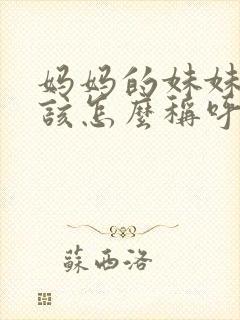 妈妈的妹妹
該怎麼稱呼
蘇西洛